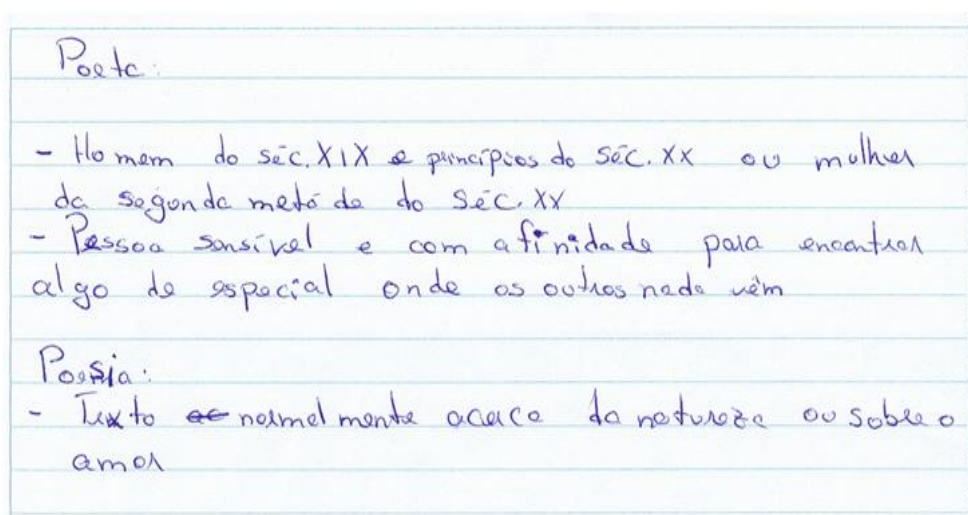 Poeta:
- Homem do séc. XIX e princípios do séc. XX ou mulher
da segunda metade do séc. XX
- Pessoa sensível e com afinidade para encontrar
algo de especial onde os outros nada vêm
Poesia:
- Texto normalmente acerca da natureza ou sobre o
amor